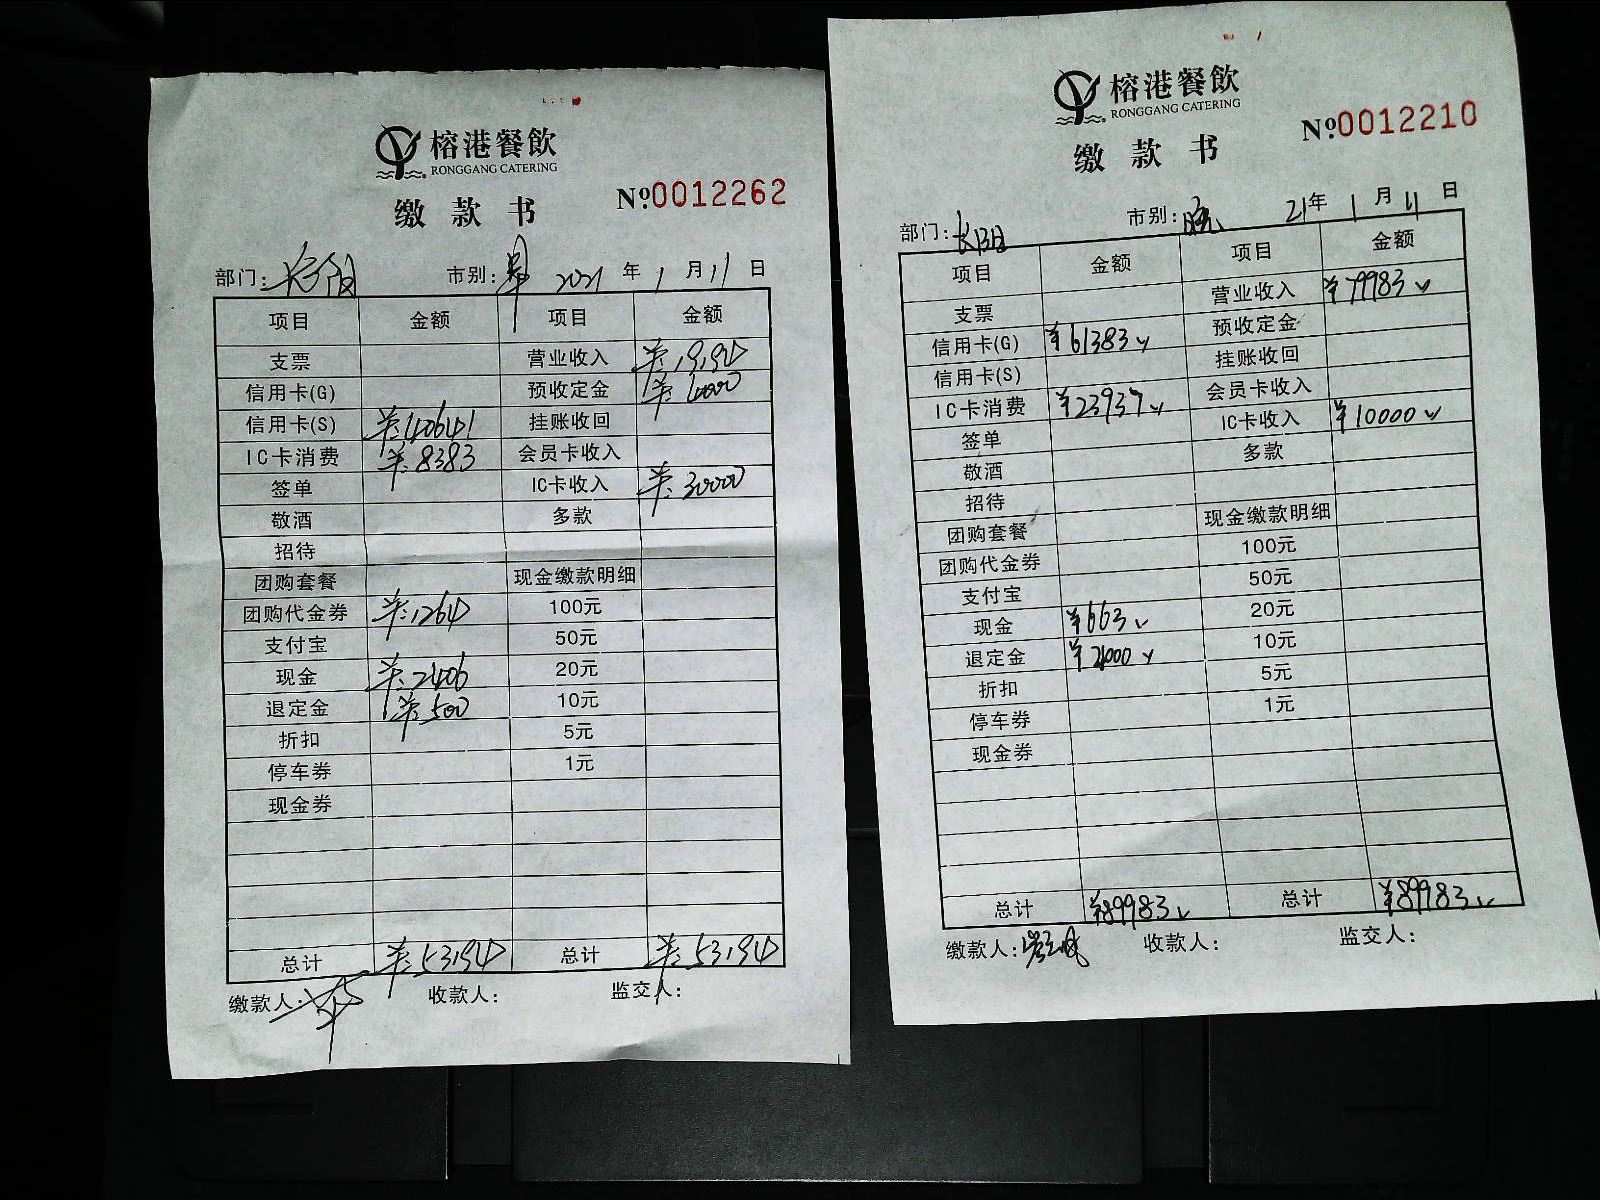 榕港餐飲
RONGGANG CATERING
缴款书
№0012262
部门: 市别: 早 2021 年 1 月 11 日
项目 金额 项目 金额
支票 营业收入 ¥:19194
信用卡(G) 预收定金 ¥:4000
信用卡(S) ¥:40641 挂账收回
IC卡消费 ¥:8383 会员卡收入
签单 IC卡收入 ¥:30000
敬酒 多款
招待
团购套餐 现金缴款明细
团购代金券 ¥:1264 100元
支付宝 50元
现金 ¥:2406 20元
退定金 ¥:500 10元
折扣 5元
停车券 1元
现金券
总计 ¥:53194 总计 ¥:53194
缴款人: 收款人: 监交人:
榕港餐飲
RONGGANG CATERING
缴款书
№0012210
部门: 市别: 晚 21年 1 月 11 日
项目 金额 项目 金额
支票 营业收入 ¥79983
信用卡(G) ¥61383 预收定金
信用卡(S) 挂账收回
IC卡消费 ¥23937 会员卡收入
签单 IC卡收入 ¥10000
敬酒 多款
招待
团购套餐 现金缴款明细
团购代金券 100元
支付宝 50元
现金 ¥663 20元
退定金 ¥4000 10元
折扣 5元
停车券 1元
现金券
总计 ¥89983 总计 ¥89983
缴款人: 收款人: 监交人: